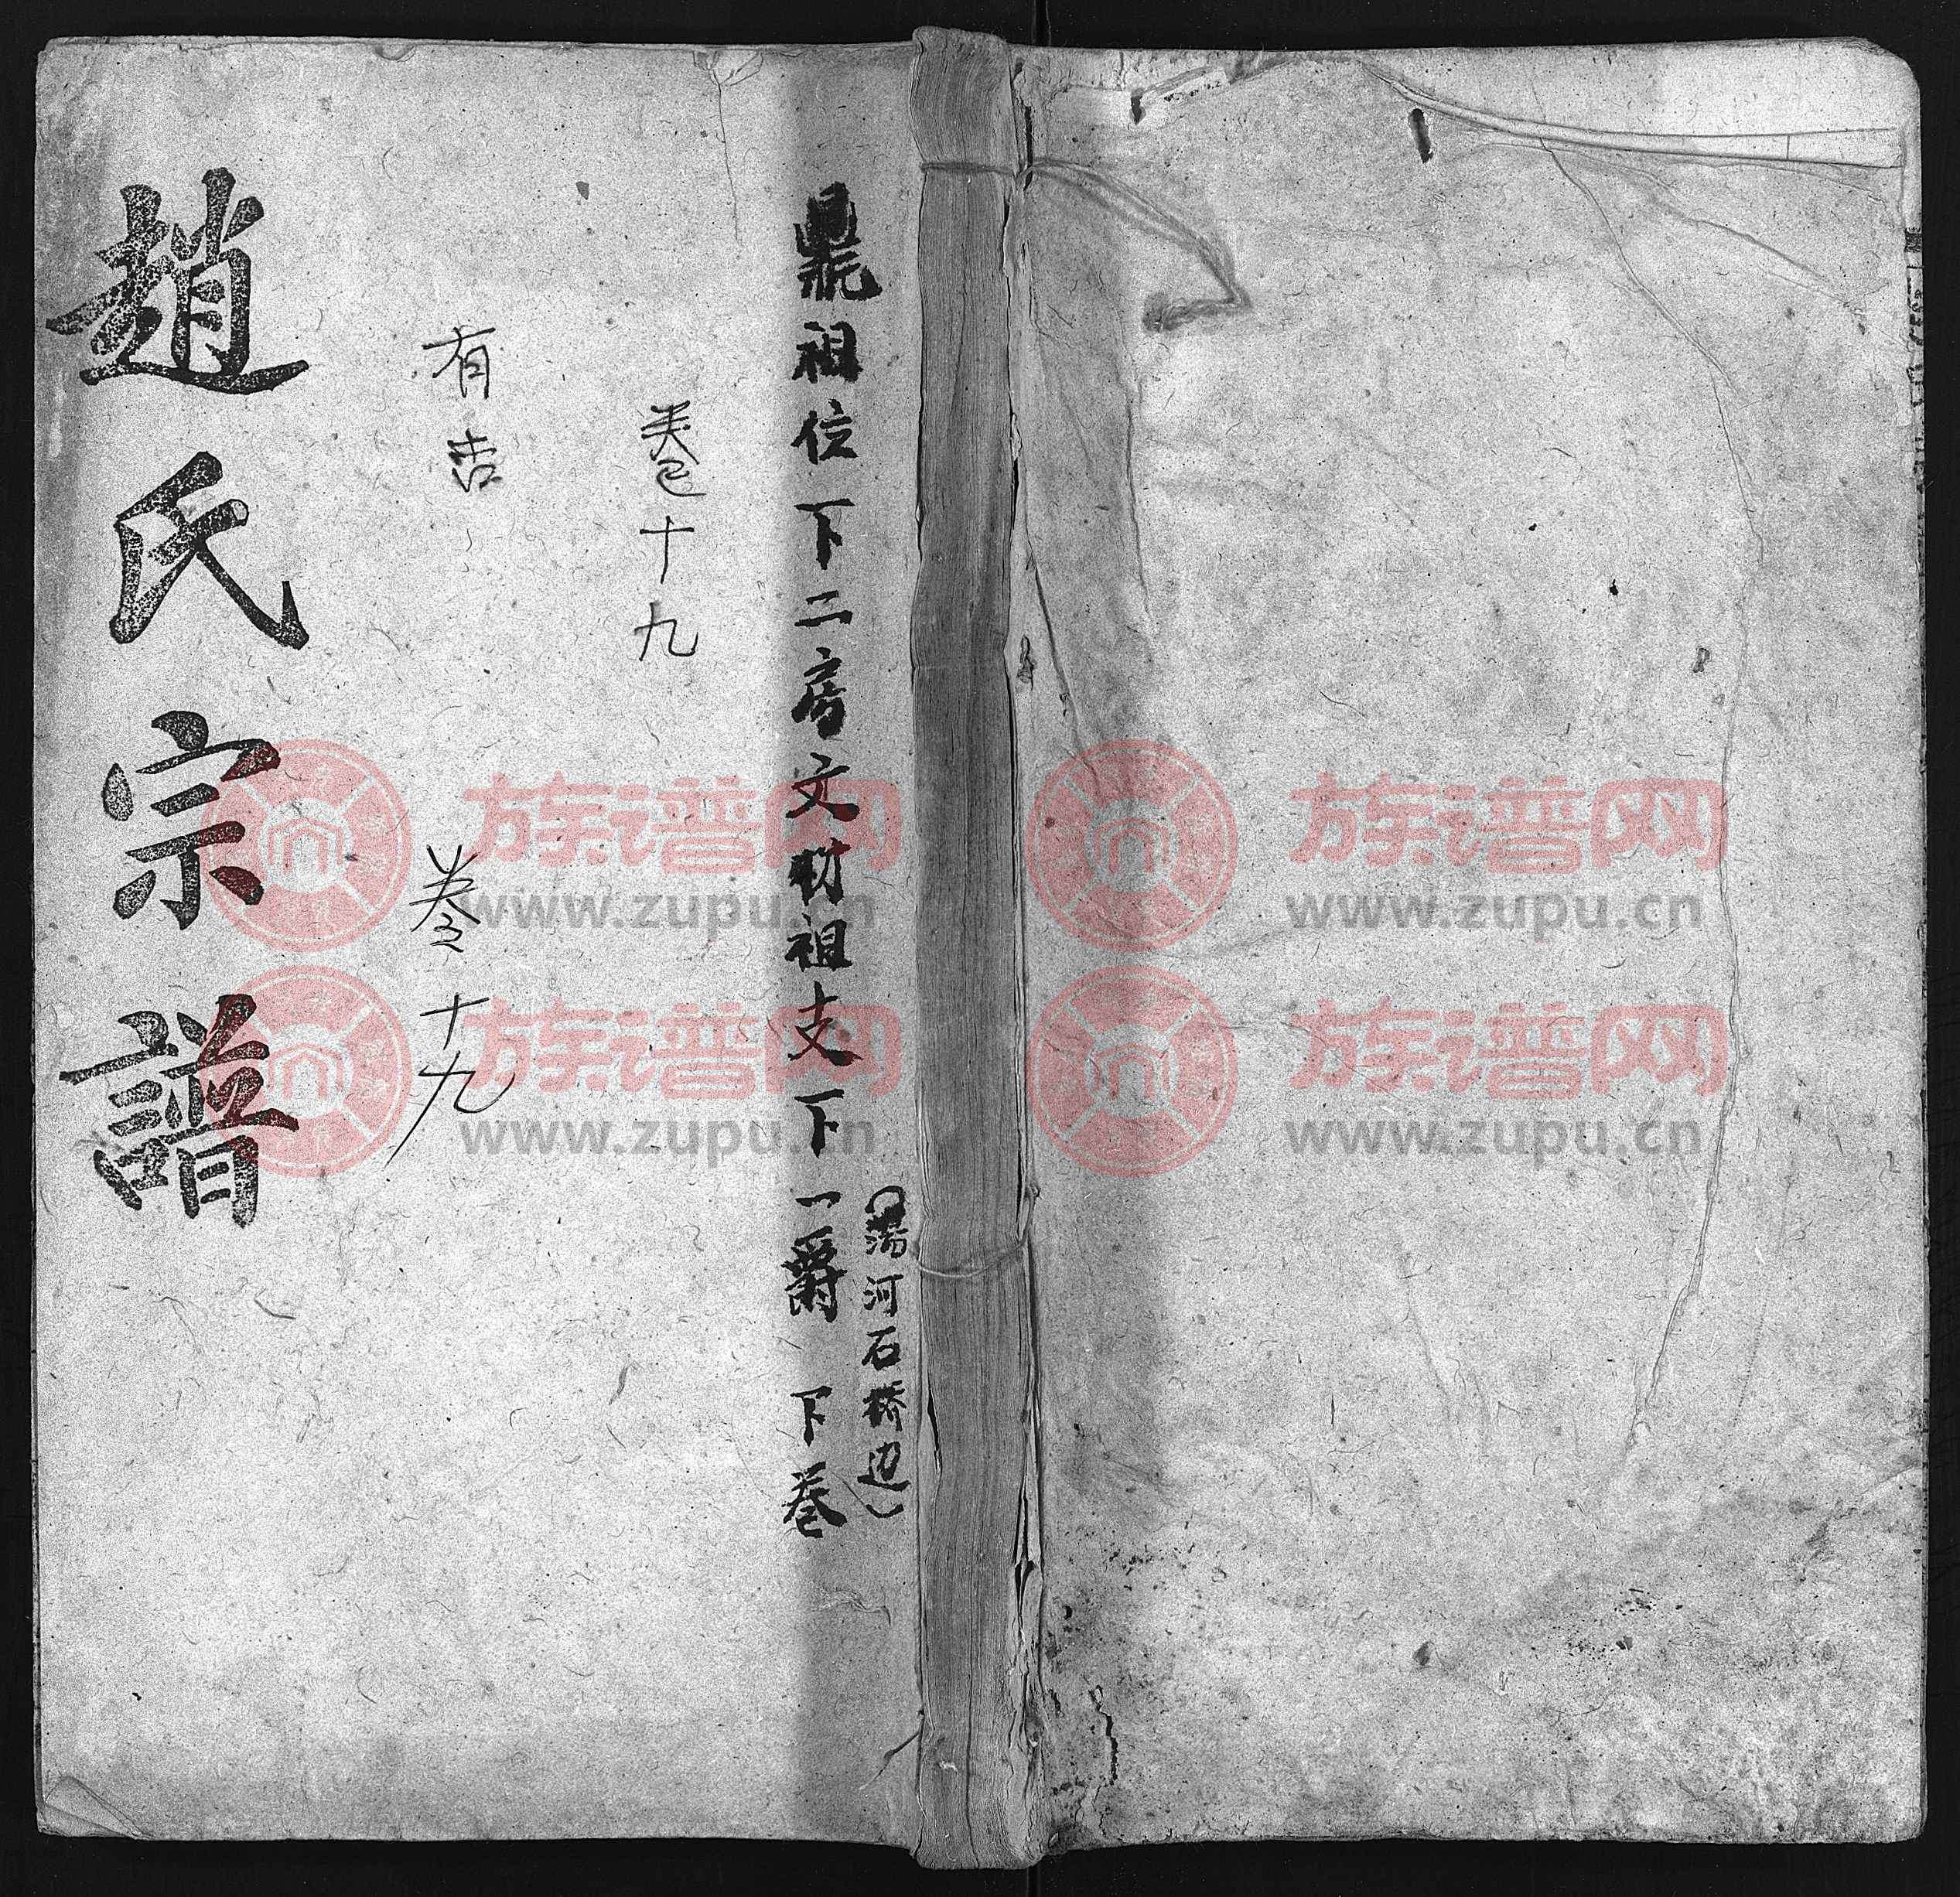 鼎祖位下二房文昉祖支下一爵 下卷
(湯河石桥边)
卷十九
有吉
卷之十九
趙氏宗譜
族谱网
www.zupu.cn
族谱网
www.zupu.cn
族谱网
www.zupu.cn
族谱网
www.zupu.cn